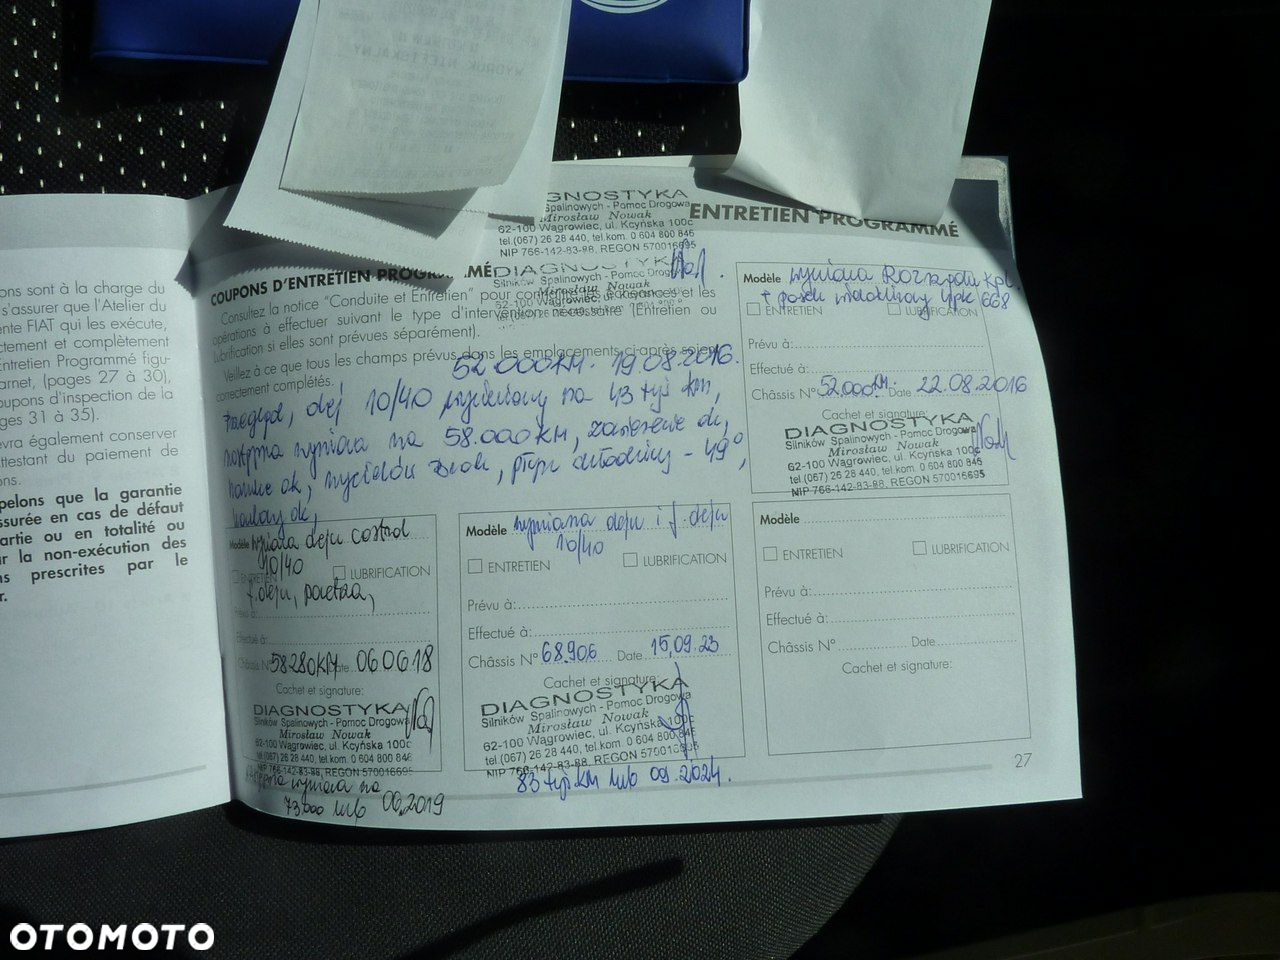 WYDRUK NIEFISKALNY
ons sont à la charge du
s'assurer que l'Atelier du
ente FIAT qui les exécute,
ctement et complètement
Entretien Programmé figu-
arnet, (pages 27 à 30),
oupons d'inspection de la
ges 31 à 35).
evra également conserver
attestant du paiement de
ons.
pelons que la garantie
ssurée en cas de défaut
artie ou en totalité ou
ur la non-exécution des
ns prescrites par le
r.
AGNOSTYKA
Spalinowych - Pomoc Drogowa
Mirosław Nowak
62-100 Wągrowiec, ul. Kcyńska 100c
tel.(067) 26 28 440, tel.kom. 0 604 800 846
NIP 766-142-83-88, REGON 570016695
ENTRETIEN PROGRAMMÉ
COUPONS D'ENTRETIEN PROGRAMMÉ
DIAGNOSTYKA
Silników Spalinowych - Pomoc
Mirosław Nowak
Consultez la notice "Conduite et Entretien" pour les échéances et les
opérations à effectuer suivant le type d'intervention nécessaire (Entretien ou
lubrification si elles sont prévues séparément).
Veillez à ce que tous les champs prévus dans les emplacements ci-après soient
correctement complétés.
52.000KM. 19.08.2016.
Przegląd, olej 10/40 wymieniony na 43 tyś km,
następna wymiana na 58.000KM, zawieszenie ok,
hamulce ok, wycieków brak, płyn chłodniczy - 49°,
ok,
Modèle wymiana Rozrządu kpl.
+ pasek wpk 668
ENTRETIEN LUBRIFICATION
Prévu à:
Effectué à:
Châssis N° 52.000KM. 22.08.2016
Cachet et signature
DIAGNOSTYKA
Silników Spalinowych - Pomoc Drogowa
Mirosław Nowak
62-100 Wągrowiec, ul. Kcyńska 100c
tel.(067) 26 28 440, tel.kom. 0 604 800 846
NIP 766-142-83-88, REGON 570016695
Modèle wymiana oleju castrol
10/40
ENTRETIEN LUBRIFICATION
f. oleju,
Prévu à:
Effectué à:
Châssis N° 58280KM Date 06 06.18
Cachet et signature:
DIAGNOSTYKA
Silników Spalinowych - Pomoc Drogowa
Mirosław Nowak
62-100 Wągrowiec, ul. Kcyńska 100c
tel.(067) 26 28 440, tel.kom. 0 604 800 846
766-142-83-88, REGON 570016695
następna wymiana na
73.000 lub 06.2019
Modèle wymiana oleju i f. oleju
10/40
ENTRETIEN LUBRIFICATION
Prévu à:
Effectué à:
Châssis N° 68.906 Date 15.09.23
Cachet et signature:
DIAGNOSTYKA
Silników Spalinowych - Pomoc Drogowa
Mirosław Nowak
62-100 Wągrowiec, ul. Kcyńska 100c
tel.(067) 26 28 440, tel.kom. 0 604 800 846
NIP 766-142-83-88, REGON 570016695
83 tyś KM lub 09.2024.
Modèle
ENTRETIEN LUBRIFICATION
Prévu à:
Effectué à:
Châssis N° Date
Cachet et signature:
27
OTOMOTO